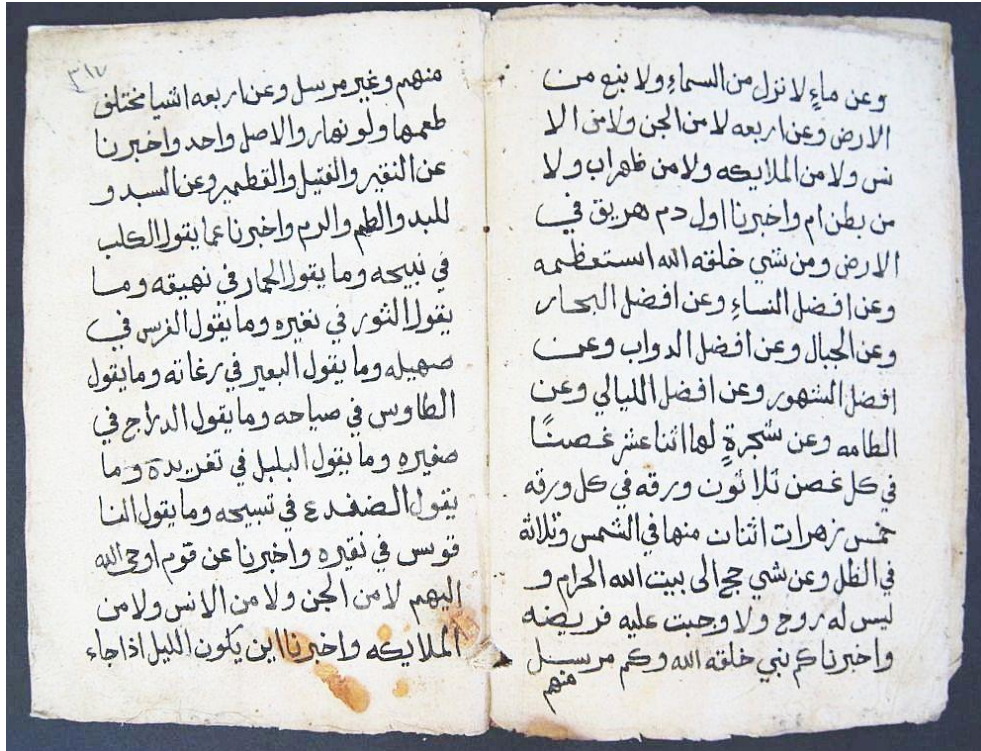 وعن ماءٍ لا نزل من السماءِ ولا نبع من
الارض وعن اربعه لا من الجن ولا من الا
نس ولا من الملايكه ولا من ظهر اب ولا
من بطن ام واخبرنا اول دم هريق في
الارض ومن شي خلقه الله استعظمه
وعن افضل النساءِ وعن افضل البحار
وعن الجبال وعن افضل الدواب وعن
افضل الشهور وعن افضل الليالي وعن
الطامه وعن شجرةٍ لها اثنا عشر غصنًا
في كل غصن ثلاثون ورقه في كل ورقه
خمس زهرات اثنان منها في الشمس وثلاثة
في الظل وعن شي حج الى بيت الله الحرام و
ليس له روح ولا وجبت عليه فريضه
واخبرنا كم نبي خلقه الله وكم مرسل
منهم
٣١٧
منهم وغير مرسل وعن اربعه اشيا مختلف
طعمها ولونها والاصل واحد واخبرنا
عن النقير والفتيل والقطمير وعن السبد و
للبد والطم والرم واخبرنا عما يقول الكلب
في نبيحه وما يقول الحمار في نهيقه وما
يقول الثور في نغيره وما يقول الفرس في
صهيله وما يقول البعير في رغاته وما يقول
الطاوس في صياحه وما يقول الدراج في
صفيره وما يقول البلبل في تغريده وما
يقول الضفدع في تسبيحه وما يقول النا
قوس في نقيره واخبرنا عن قوم اوحى الله
اليهم لا من الجن ولا من الانس ولا من
الملايكه واخبرنا اين يكون الليل اذا جاء